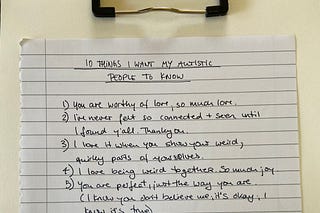 10 THINGS I WANT MY AUTISTIC
PEOPLE TO KNOW
1) You are worthy of love, so much love.
2) I've never felt so connected + seen until
I found y'all. Thank you.
3) I love it when you show your weird,
quirky parts of yourselves.
4) I love being weird together. So much joy.
5) You are perfect, just the way you are.
(I know you don't believe me, it's okay, I
know it's true)